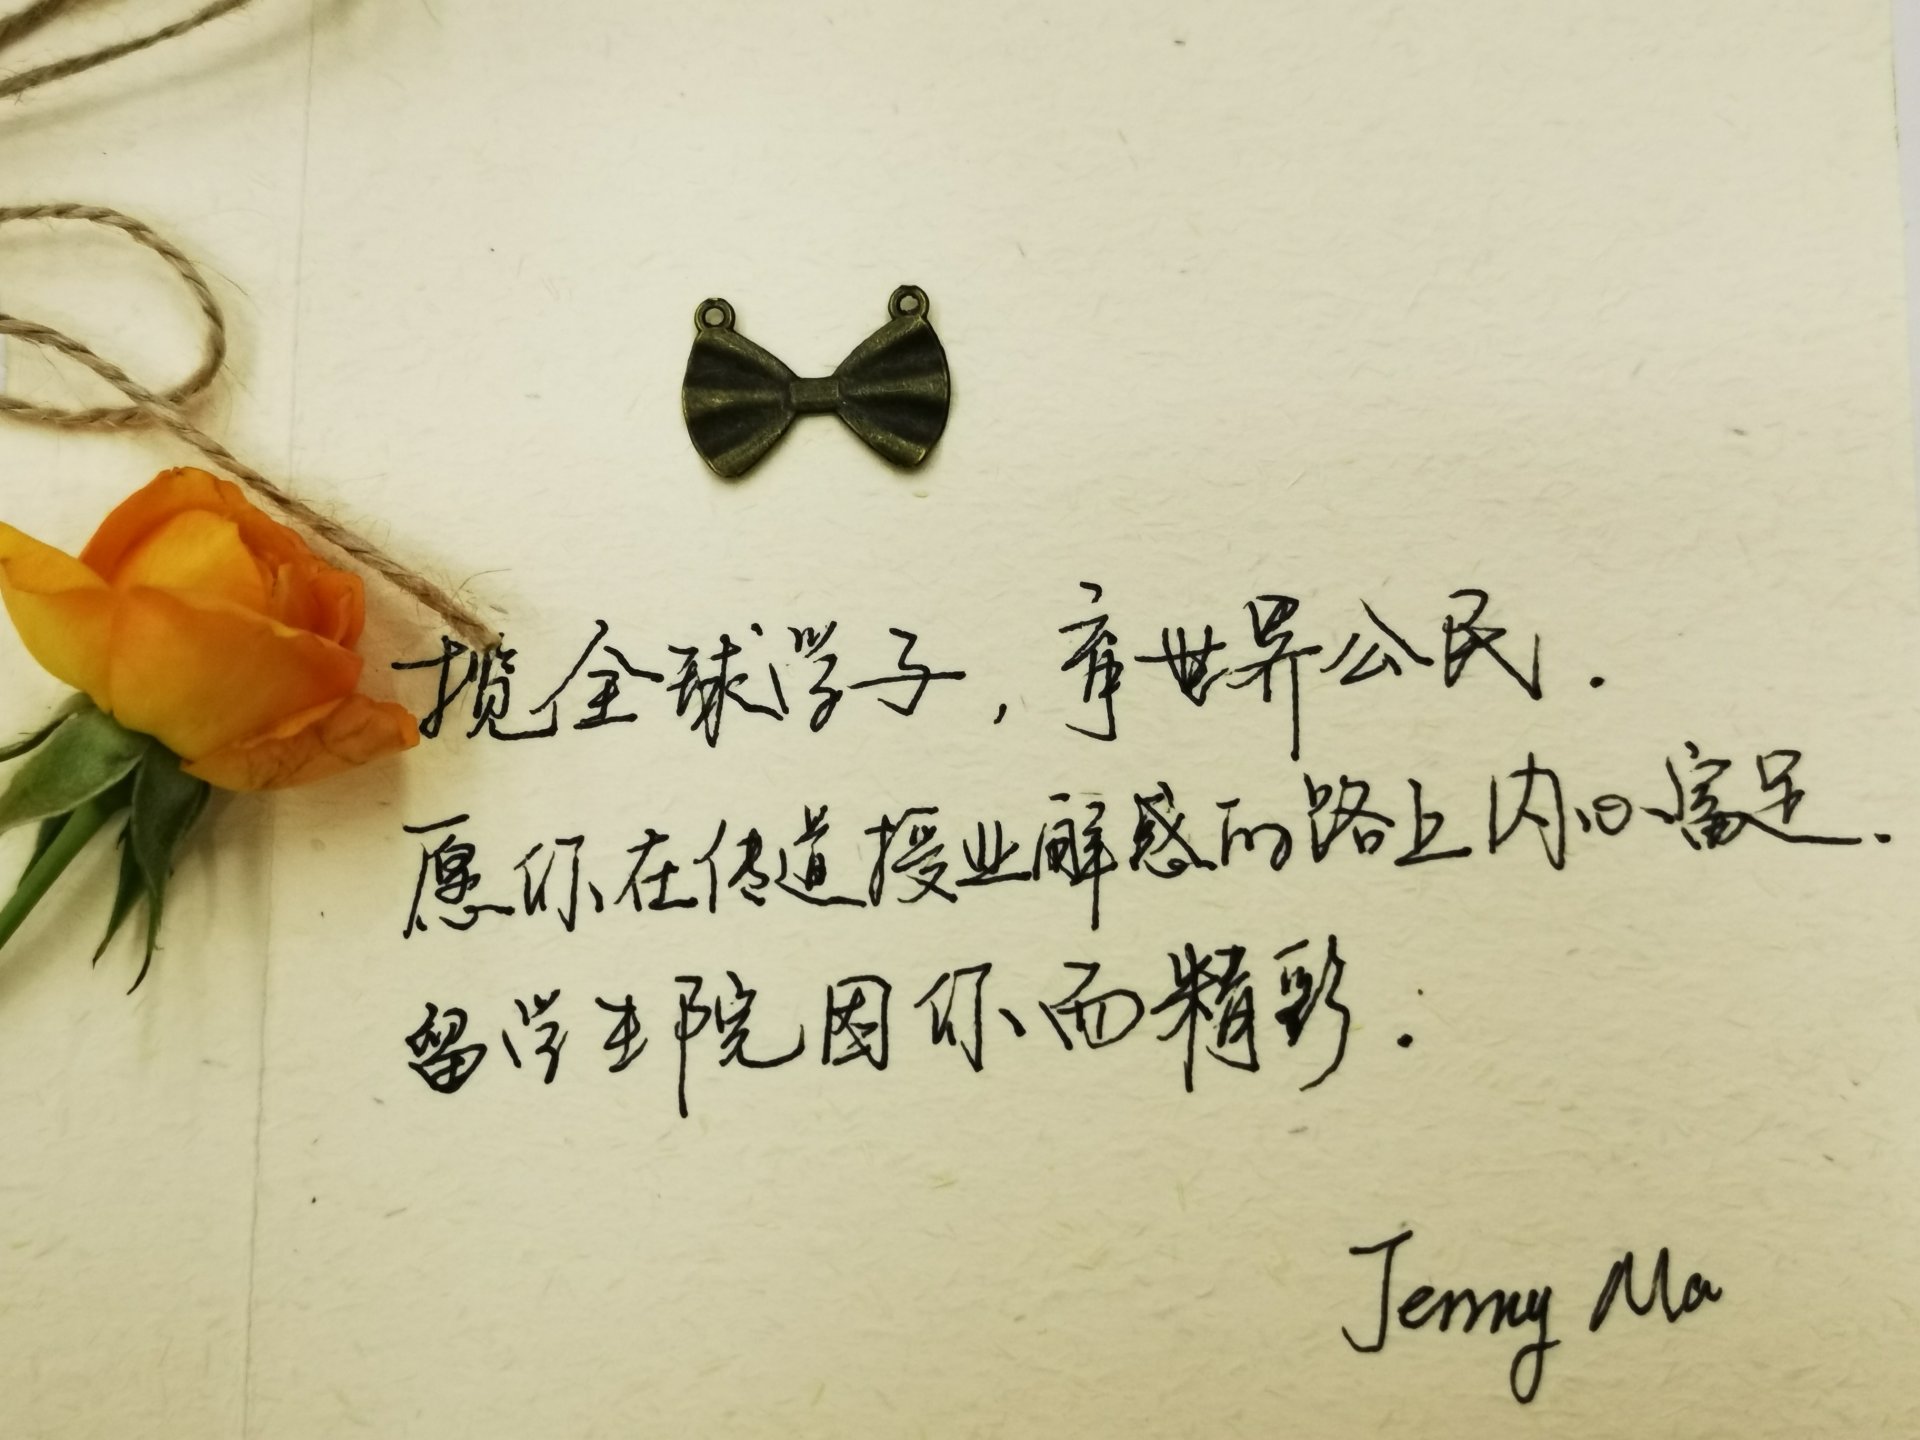 揽全球学子，育世界公民．
愿你在传道授业解惑的路上内心富足．
留学生院因你而精彩．
Jenny Ma